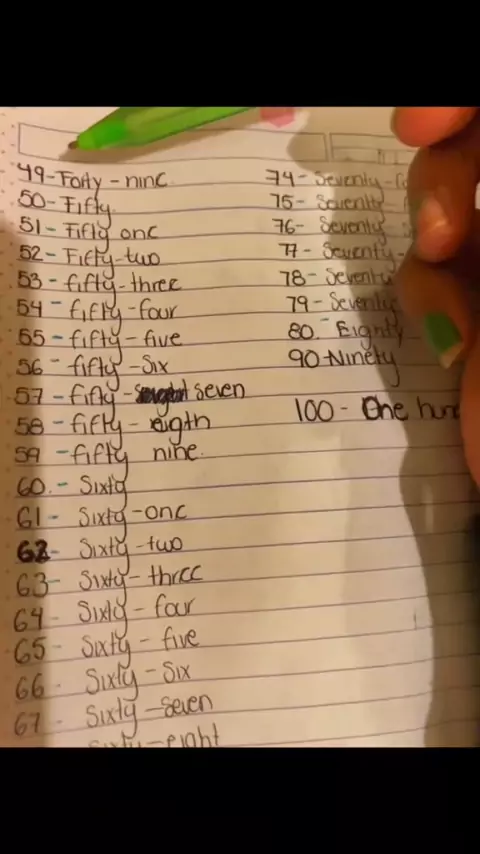 49-Forty-nine
50-Fifty
51-Fifty one
52-Fifty-two
53-fifty-three
54-fifty-four
55-fifty-five
56-fifty-Six
57-fifty-seven
58-fifty-eigth
59-fifty nine
60.-Sixty
61-Sixty-one
62-Sixty-two
63-Sixty-three
64-Sixty-four
65-Sixty-five
66-Sixty-Six
67-Sixty-seven
Sixty-eight
74-Seventy-
75-Seventy-
76-Seventy-
77-Seventy-
78-Seventy
79-Seventy
80.-Eighty
90-Ninety
100-One